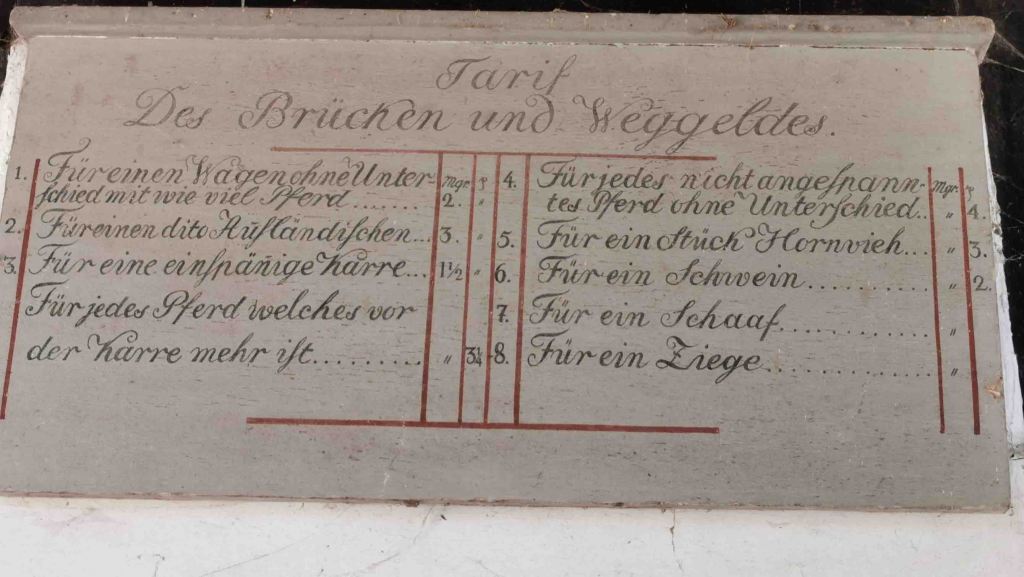 Tarif
Des Brücken und Weggeldes.
1. Für einen Wagen ohne Unter- Mgr. ₰
schied mit wie viel Pferd........ 2. "
2. Für einen dito Ausländischen... 3. "
3. Für eine einspänige Karre... 1½ "
Für jedes Pferd welches vor
der Karre mehr ist.......... " 3¼
4. Für jedes nicht angespann- Mgr. ₰
tes Pferd ohne Unterschied.. " 4.
5. Für ein Stück Hornvieh... " 3.
6. Für ein Schwein............ " 2.
7. Für ein Schaaf............... "
8. Für ein Ziege................. "